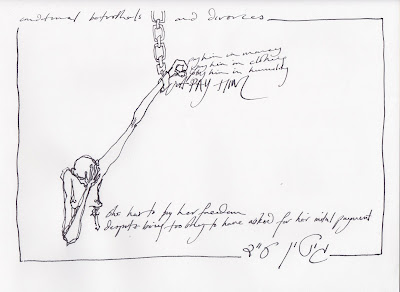 conditional betrothals and divorces
pay him in money
pay him in clothing
pay him in humility
PAY HIM
she has to pay her freedom
despite being too shy to have asked for her payment
גיטין